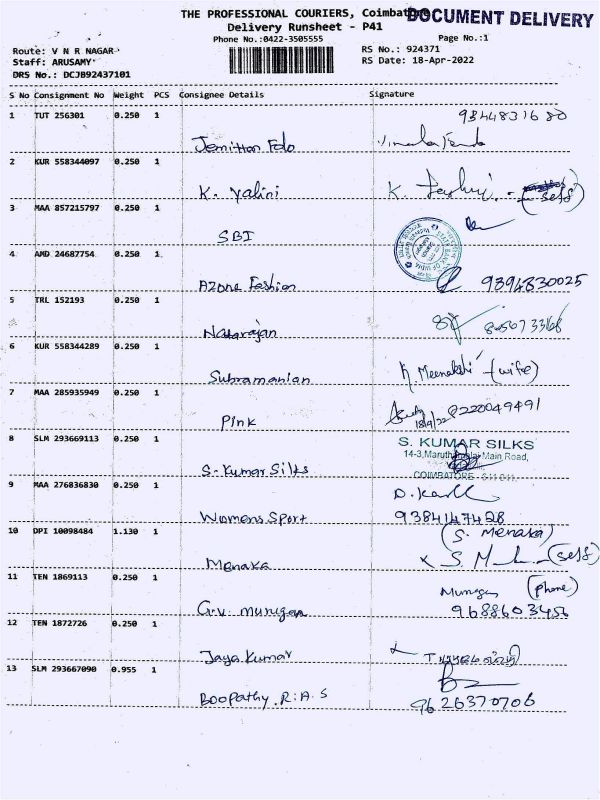 THE PROFESSIONAL COURIERS, Coimbat
DOCUMENT DELIVERY
Delivery Runsheet - P41
Phone No.:0422-3505555
Page No.:1
Route: V N R NAGAR
RS No.: 924371
Staff: ARUSAMY
RS Date: 18-Apr-2022
DRS No.: DCJB92437101
S No Consignment No Weight PCS Consignee Details Signature
1 TUT 256301 0.250 1
9344831680
Jemitton Fdo
2 KUR 558344097 0.250 1
K. Yalini K. (self)
3 MAA 857215797 0.250 1
SBI
STATE BANK OF INDIA
4 AMD 24687754 0.250 1
Azone Fashion 9394830025
5 TRL 152193 0.250 1
Natarajan
6 KUR 558344289 0.250 1
Subramanian K. Meenakshi - (wife)
7 MAA 285935949 0.250 1
Pink 18/4/22 8220049491
8 SLM 293669113 0.250 1
S. KUMAR SILKS
14-3, Maruthamalai Main Road,
S. Kumar Silks
COIMBATORE - 641 041.
9 MAA 276836830 0.250 1
Womens Sport 9384147428
10 DPI 10098484 1.130 1
(S. Menaka)
Menaka x S. M (self)
11 TEN 1869113 0.250 1
Murugan (phone)
G.V. Murugan 9688603456
12 TEN 1872726 0.250 1
Jaya Kumar
13 SLM 293667090 0.955 1
Boopathy. R.A.S 9626370706